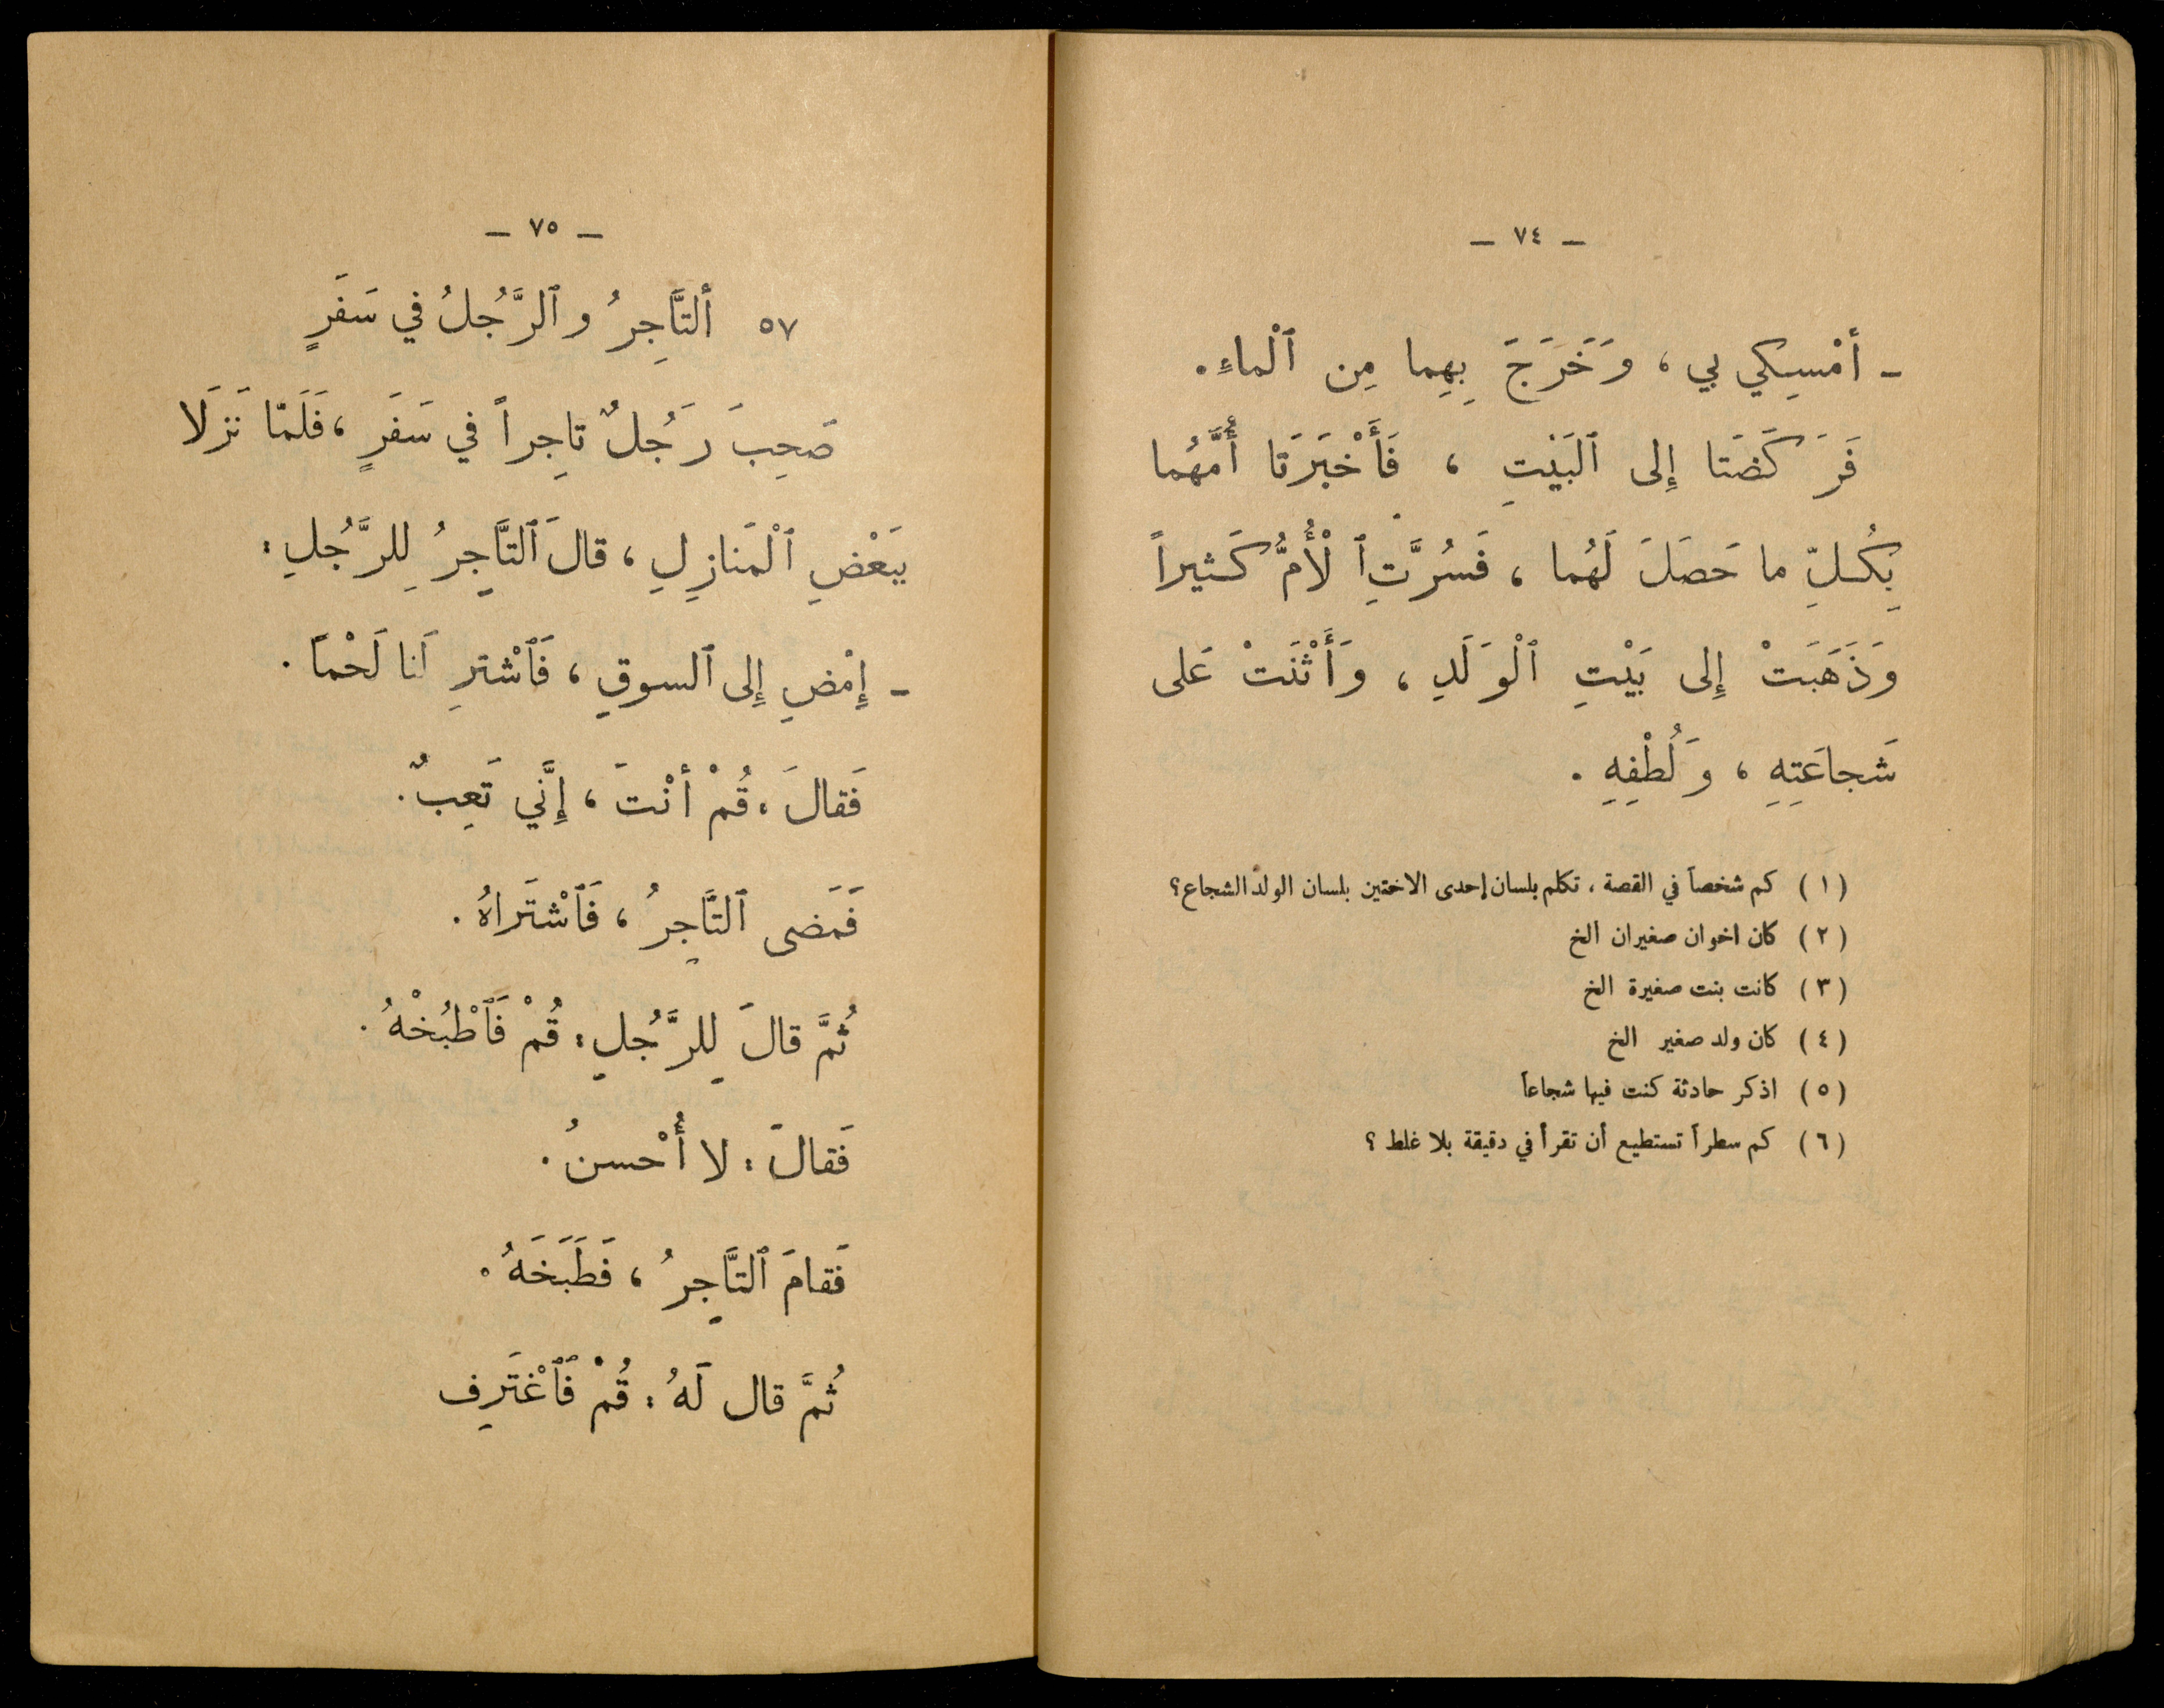 — ٧٤ —
- أمْسِكي بي ، وَخَرَجَ بِهِما مِن ٱلْماءِ .
فَرَكَضَتا إِلى ٱلبَيْتِ ، فَأَخْبَرَتا أُمَّهُما
بِكُلِّ ما حَصَلَ لَهُما ، فَسُرَّتِ ٱلْأُمُّ كَثيراً
وَذَهَبَتْ إِلى بَيْتِ ٱلْوَلَدِ ، وَأَثْنَتْ عَلى
شَجاعَتِهِ ، وَلُطْفِهِ .
( ١ ) كم شخصاً في القصة ، تكلم بلسان إحدى الاختين بلسان الولد الشجاع ؟
( ٢ ) كان اخوان صغيران الخ
( ٣ ) كانت بنت صغيرة الخ
( ٤ ) كان ولد صغير الخ
( ٥ ) اذكر حادثة كنت فيها شجاعاً
( ٦ ) كم سطراً تستطيع أن تقرأ في دقيقة بلا غلط ؟
— ٧٥ —
٥٧ ألتَّاجِرُ وٱلرَّجُلُ في سَفَرٍ
صَحِبَ رَجُلٌ تاجِراً في سَفَرٍ ، فَلَمّا نَزَلَا
بَعْضِ ٱلْمَنازِلِ ، قالَ ٱلتَّاجِرُ لِلرَّجُلِ :
- إِمْضِ إِلى ٱلسوقِ ، فَٱشْترِ لَنا لَحْماً .
فَقالَ : قُمْ أنْتَ ، إِنَّي تَعِبٌ .
فَمَضى ٱلتَّاجِرُ ، فَٱشْتَراهُ .
ثُمَّ قالَ لِلرَّجُلِ : قُمْ فَٱطْبُخْهُ .
فَقالَ : لا أُحْسنُ .
فَقامَ ٱلتَّاجِرُ ، فَطَبَخَهُ .
ثُمَّ قال لَهُ : قُمْ فَٱغْتَرِف